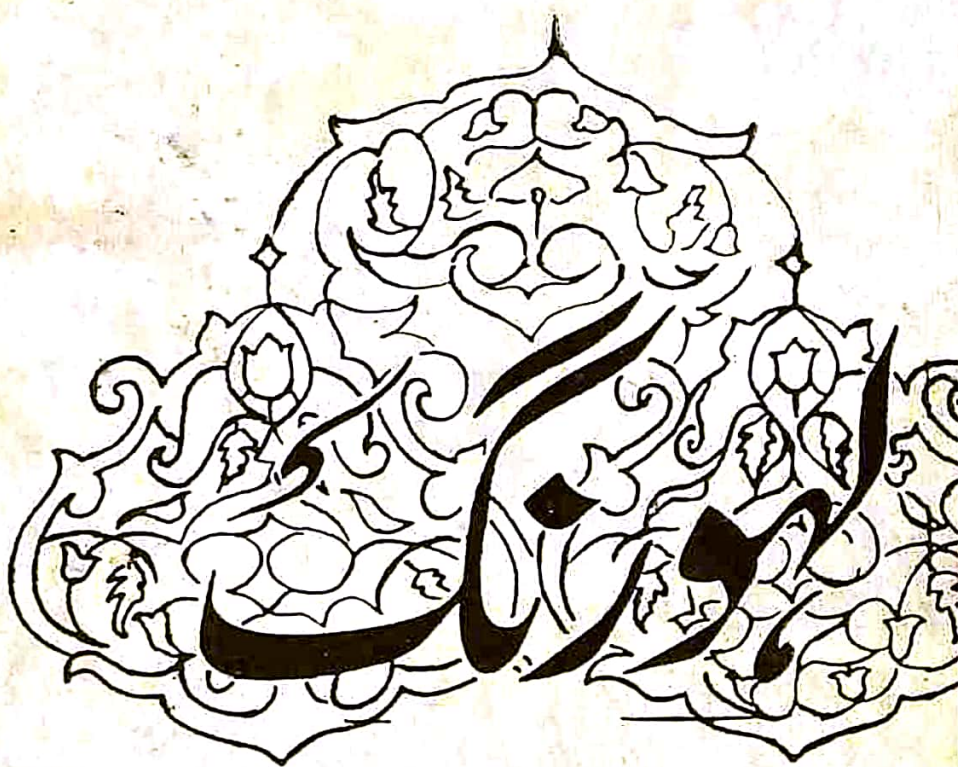 لہو رنگ